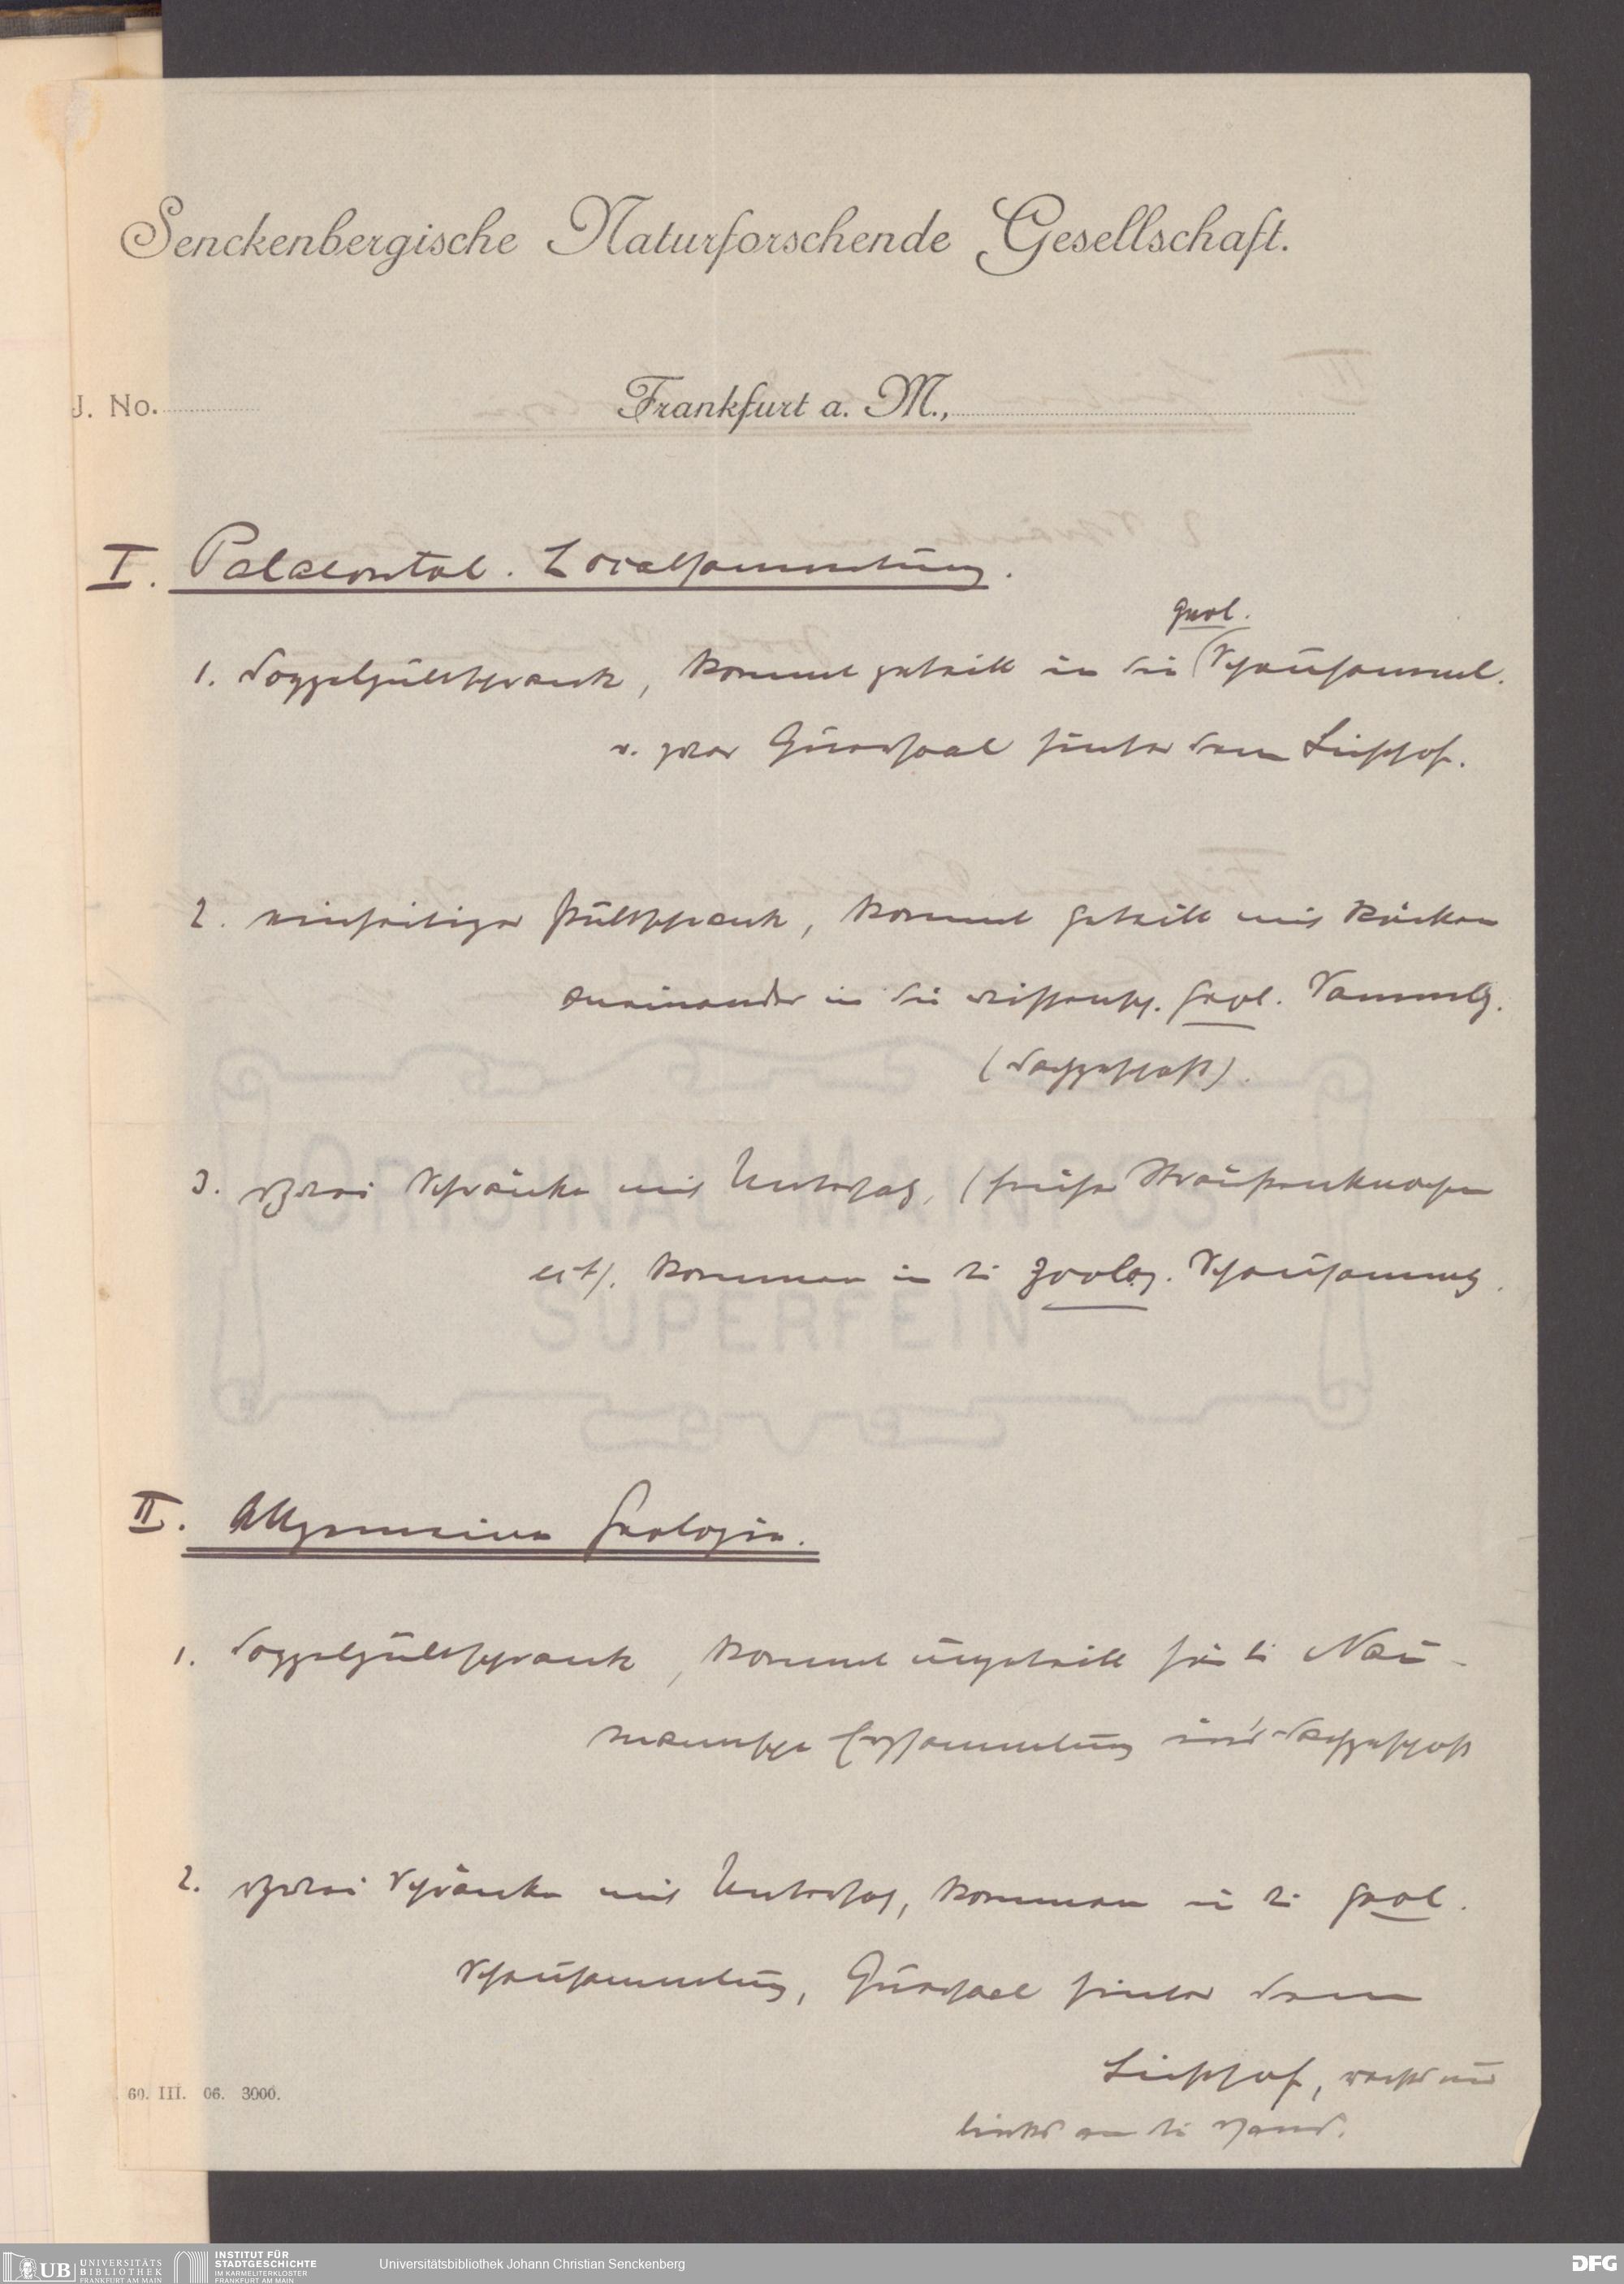 Senckenbergische Naturforschende Gesellschaft.
J. No.
Frankfurt a. M.,
I. Palaeontol. Localsammlung.
geol.
1. Doppelpultschrank, kommt geteilt in die (Schausamml.
u. zwar Quersaal hinter dem Lichthof.
2. einseitiger Pultschrank, kommt geteilt mit Rücken
aneinander in die wissensch. geol. Sammlg.
(Dachgeschoß).
3. Zwei Schränke mit Untersatz, (früher Straußenknochen
ect). kommen in di zoolog. Schausammlg.
ORIGINAL MAINPOST
SUPERFEIN
II. Allgemeine Geologie.
1. Doppelpultschrank, kommt ungeteilt für di Nau-
mannsche Erzsammlung in's Dachgeschoß
2. Zwei Schränke mit Untersatz, kommen in di geol.
Schausammlung, Quersaal hinter dem
Lichthof, rechts und
links an di Wand.
60. III. 06. 3000.
UB
UNIVERSITÄTS
BIBLIOTHEK
FRANKFURT AM MAIN
INSTITUT FÜR
STADTGESCHICHTE
IM KARMELITERKLOSTER
FRANKFURT AM MAIN
Universitätsbibliothek Johann Christian Senckenberg
DFG